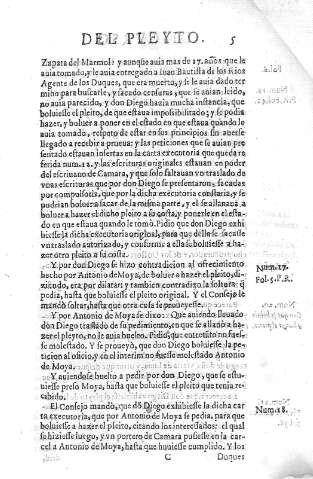 DEL PLEYTO. 5
Zapata del Marmol: y aunque auia mas de 17. años que le
auia tomado, y le auia entregado a Iuan Bautista de los Rios
Agente de los Duques, que era muerto, y se le auia dado ter
mino para buscarle, y sacado censuras, que se auian leido,
no auia parecido, y don Diego hazia mucha instancia, que
boluiesse el pleito, de que estaua impossibilitado; y se podia
hazer, y boluer a poner en el estado en que estaua quando le
auia tomado, respeto de estar en sus principios sin auerse
llegado a recebir a prueua: y las peticiones que se auian pre
sentado estauan insertas en la carta executoria que queda re
ferida num. 2. y las escrituras originales estauan en poder
del escriuano de Camara, y que solo faltauan vn traslado de
vnas escrituras que por don Diego se presentaron, sacadas
por compulsoria, que por la dicha executoria constaria, y se
podrian boluer a sacar de la misma parte, y el se allanaua a
boluer a hazer el dicho pleito a su costa, y ponerle en el esta-
do en que estaua quando le tomò. Pidio que don Diego exhi
biesse la dicha executoria original, para que della se sacasse
vn traslado autorizado, y conforme a ella se boluiesse a ha-
zer otro pleito a su costa.
Y por don Diego se hizo contradicion al ofrecimiento
hecho por Antonio de Moya, de boluer a hazer el pleito, di-
ziendo, era por dilatar: y tambien contradixo la soltura q̃
pedia, hasta que boluiesse el pleito original. Y el Consejo le
mandò soltar, hasta que otra cosa se proueyesse.
Num. 17.
Fol. 5. P. R.
Y por Antonio de Moya se dixo: Que auiendo lleuado
don Diego traslado de su pedimiento, en que se allanò a ha-
zer el pleyto, no le auia buelto. Pidio, que entretanto no fues-
se molestado. Y se proueyò, que don Diego boluiesse la pe-
ticion al oficio, y en el interim no fuesse molestado Antonio
de Moya.
Y auiendose buelto a pedir por don Diego, que se estu-
uiesse preso Moya, hasta que boluiesse el pleito que tenia re-
cebido.
El Consejo mandò, que dõ Diego exhibiesse la dicha car
ta executoria, que por Antonio de Moya se pedia, para que
boluiesse a hazer el pleito, citando los interessados: el qual
lo hiziesse luego, y vn portero de Camara pusiesse en la car-
cel a Antonio de Moya, hasta que huuiesse cumplido. Y los
Num. 18.
C Duques